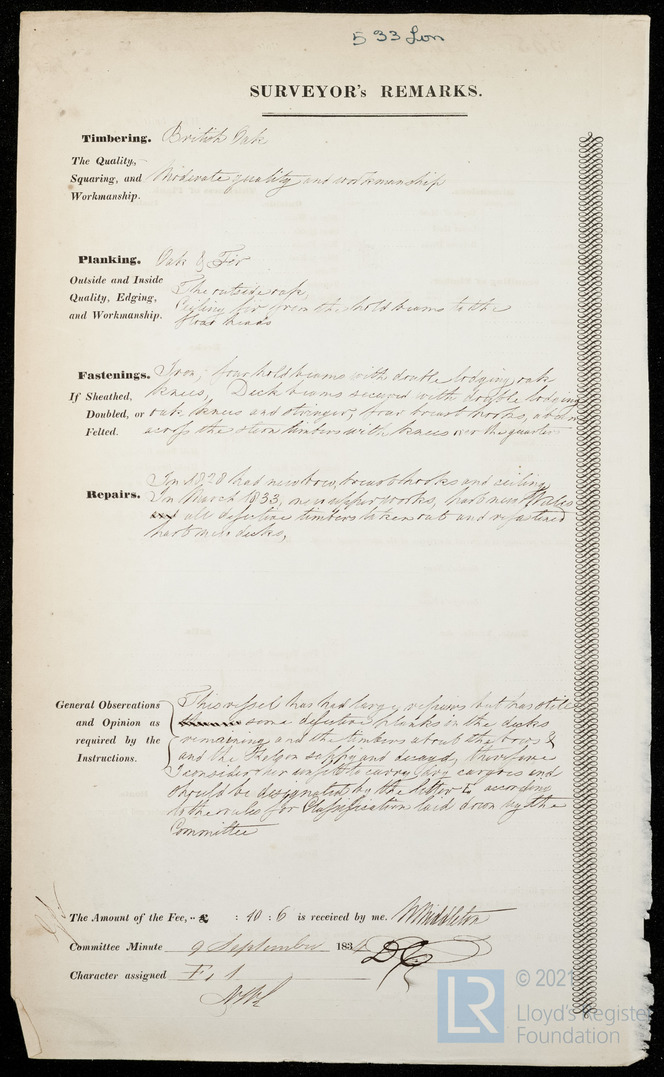 533 Lon
SURVEYOR's REMARKS.
Timbering. British Oak
The Quality,
Squaring, and Moderate quality and workmanship
Workmanship.
Planking. Oak & Fir
Outside and Inside The outside oak
Quality, Edging, Ceiling fir from the hold beams to the
and Workmanship. floor heads
Fastenings. Iron, four hold beams with double lodging oak
If Sheathed, knees, Deck beams secured with double lodging
Doubled, or oak knees and stringer, four breast hooks,
Felted. across the stern timbers with knees over the quarter
In 1828 had new bow, breasthooks and ceiling
Repairs. In March 1833, new upper works, part new Wales
all defective timbers taken out and refastened
part new decks,
General Observations This vessel has had large repairs but has still
and Opinion as some defective planks in the decks
required by the remaining and the timbers about the bows &
Instructions. and the Kelson sappy and decayed, therefore
I consider her unfit to carry dry cargoes and
should be designated by the letter E according
to the rules for Classification laid down by the
Committee
The Amount of the Fee, £ : 10 : 6 is received by me. W Middleton
Committee Minute 9 September 1834
Character assigned E, 1
© 2021
LR Lloyd's Register
Foundation